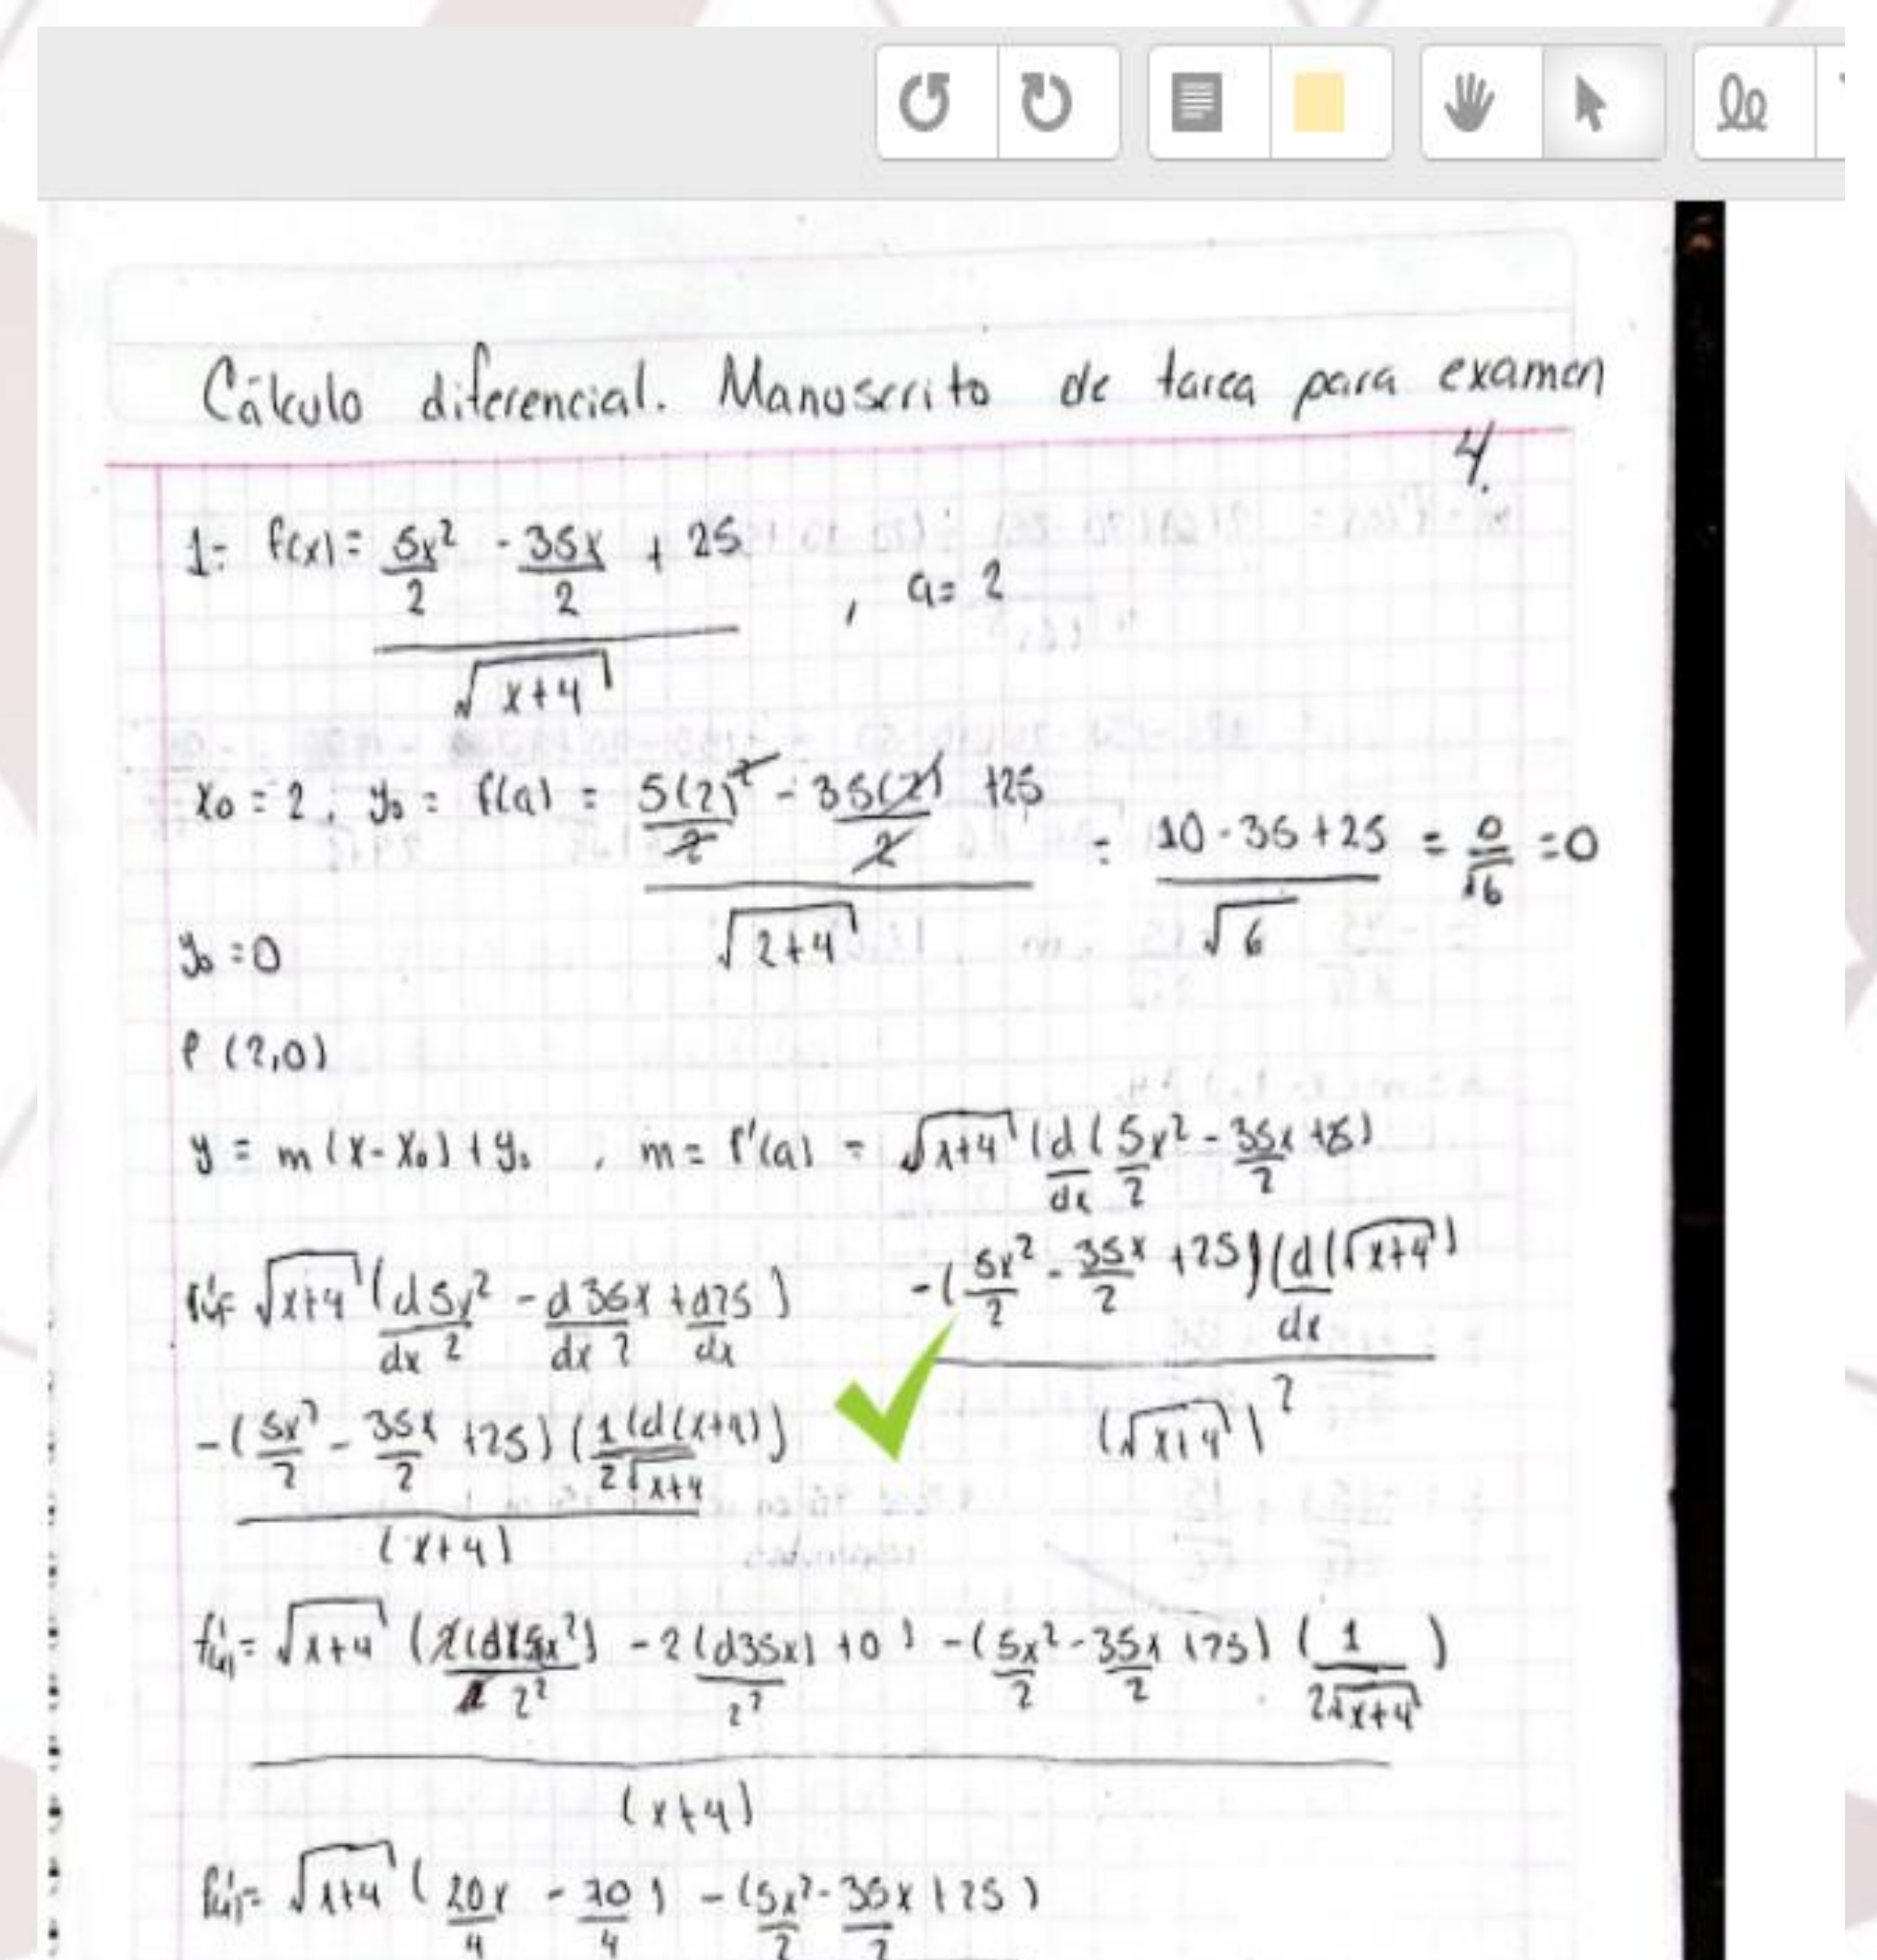 Cálculo diferencial. Manuscrito de tarea para examen
4.
1- f(x) = (5x²/2 - 35x/2 + 25) / √(x+4) , a = 2
x₀ = 2, y₀ = f(a) = (5(2)²/2 - 35(2)/2 + 25) / √(2+4) = (10 - 35 + 25) / √6 = 0/√6 = 0
y₀ = 0
P (2,0)
y = m(x - x₀) + y₀ , m = f'(a) = √(x+4) (d/dx (5x²/2 - 35x/2 + 25)
-(5x²/2 - 35x/2 + 25)(d/dx (√(x+4))
(√(x+4))²
√(x+4) (d5x²/dx 2 - d35x/dx 2 + d25/dx)
-(5x²/2 - 35x/2 + 25)(1(d(x+4))/2√(x+4))
(x+4)
√(x+4) (2(d(5x²)/2² - 2(d35x)/2² + 0) - (5x²/2 - 35x/2 + 25) (1/2√(x+4))
(x+4)
√(x+4) (20x/4 - 70/4) - (5x²/2 - 35x/2 + 25)